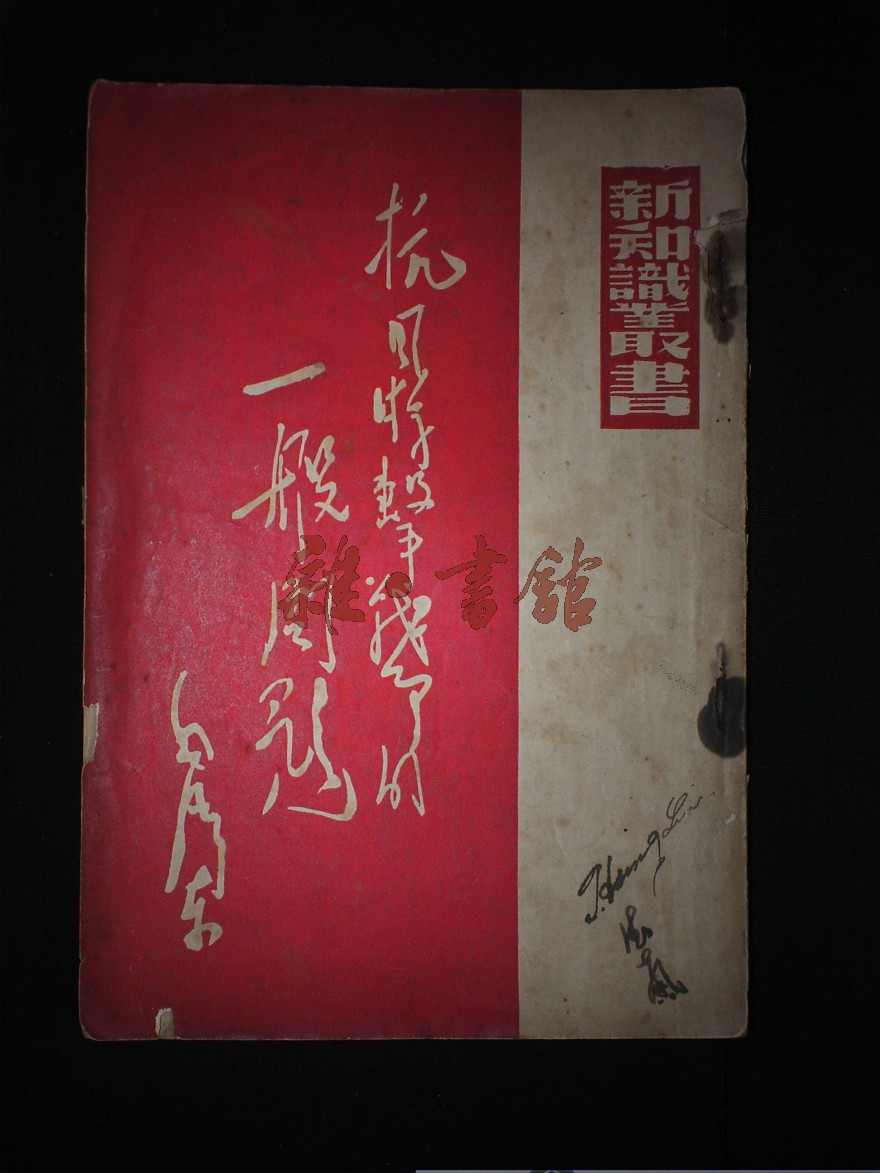 新知識叢書
抗日游擊戰爭的
一般問題
毛澤東
雜·書館